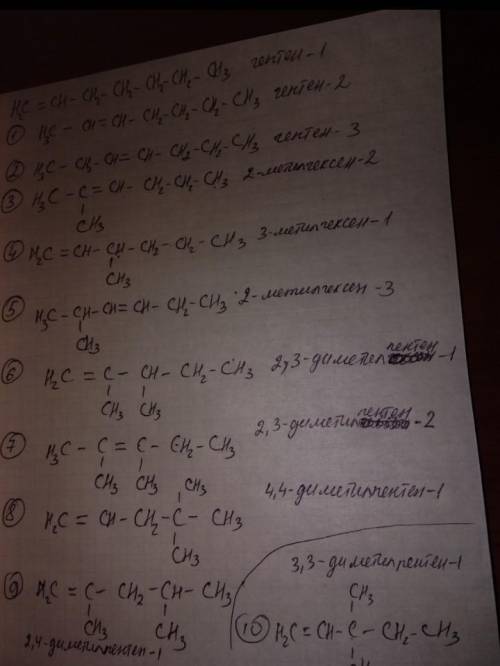 H₂C = CH - CH₂ - CH₂ - CH₂ - CH₂ - CH₃ гептен-1
① H₃C - CH = CH - CH₂ - CH₂ - CH₂ - CH₃ гептен-2
② H₃C - CH₂ - CH = CH - CH₂ - CH₂ - CH₃ гептен-3
③ H₃C - C = CH - CH₂ - CH₂ - CH₃ 2-метилгексен-2
CH₃
④ H₂C = CH - CH - CH₂ - CH₂ - CH₃ 3-метилгексен-1
CH₃
⑤ H₃C - CH - CH = CH - CH₂ - CH₃ 2-метилгексен-3
CH₃
⑥ H₂C = C - CH - CH₂ - CH₃ 2,3-диметилпентен-1
CH₃ CH₃
⑦ H₃C - C = C - CH₂ - CH₃ 2,3-диметилпентен-2
CH₃ CH₃
CH₃
⑧ H₂C = CH - CH₂ - C - CH₃ 4,4-диметилпентен-1
CH₃
⑨ H₂C = C - CH₂ - CH - CH₃
CH₃ CH₃
2,4-диметилпентен-1
3,3-диметилпентен-1
CH₃
⑩ H₂C = CH - C - CH₂ - CH₃